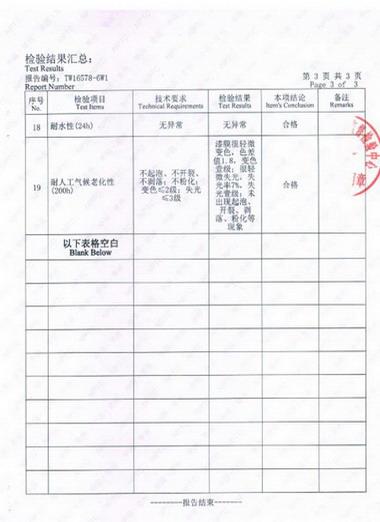 检验结果汇总:
Test Results
报告编号: TW16578-6W1
Report Number
第 3 页 共 3 页
Page 3 of 3
序号
No.
检验项目
Test Items
技术要求
Technical Requirements
检验结果
Test Results
本项结论
Item's Conclusion
备注
Remarks
18
耐水性(24h)
无异常
无异常
合格
19
耐人工气候老化性
(200h)
不起泡、不开裂、
不剥落; 不粉化;
变色≤2级; 失光
≤3级
漆膜很轻微
变色, 色差
值1.8, 变色
壹级; 很轻
微失光, 失
光率7%, 失
光壹级; 未
出现起泡、
开裂、剥
落、粉化等
现象
合格
以下表格空白
Blank Below
--------报告结束-------
检验中心
章